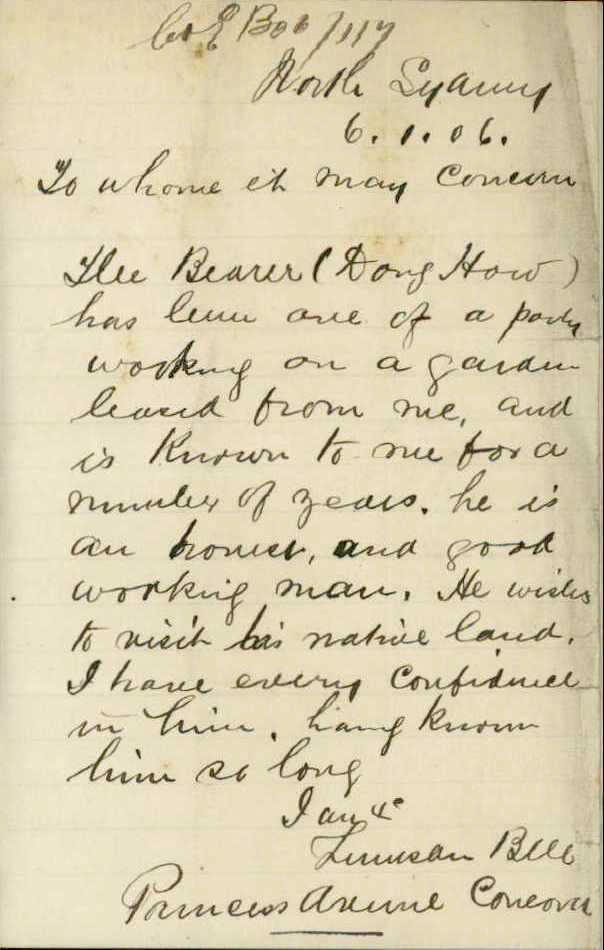 North Sydney
6.1.06.
To whome it may Concern
The Bearer (Dong How)
has been one of a party
working on a garden
leased from me, and
is Known to me for a
number of years. he is
an honest, and good
working man. He wishes
to visit his native land.
I have every Confidence
in him, having known
him so long
I am &c
Bell
Princess Avenue Concord